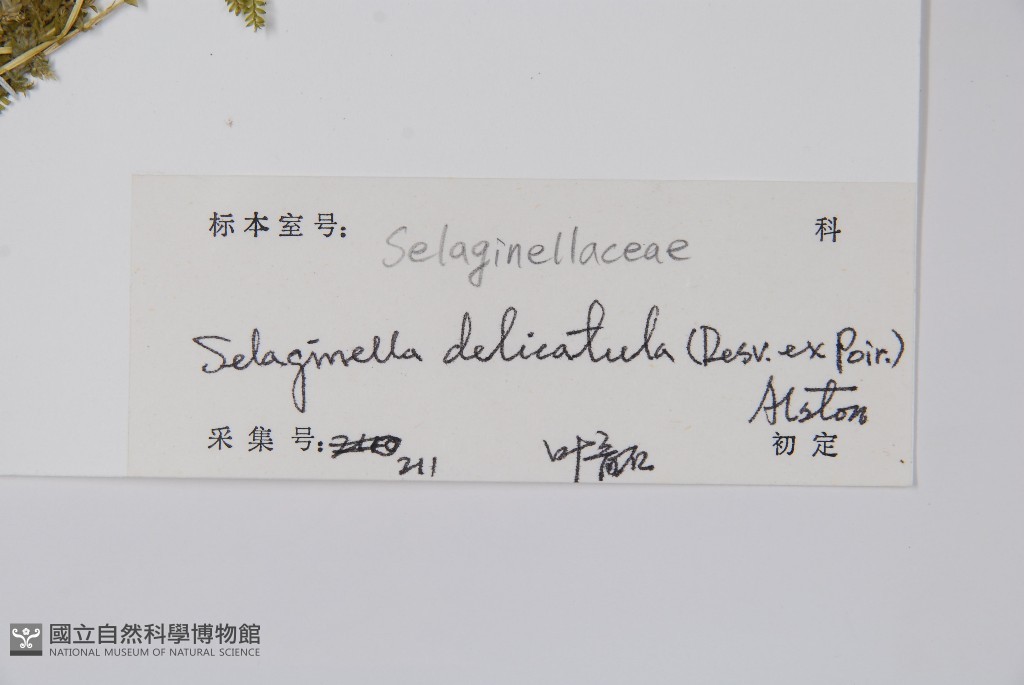 标本室号: Selaginellaceae 科
Selaginella delicatula (Desv. ex Poir.)
Alston
采集号: 211 叶 初定
國立自然科學博物館
NATIONAL MUSEUM OF NATURAL SCIENCE